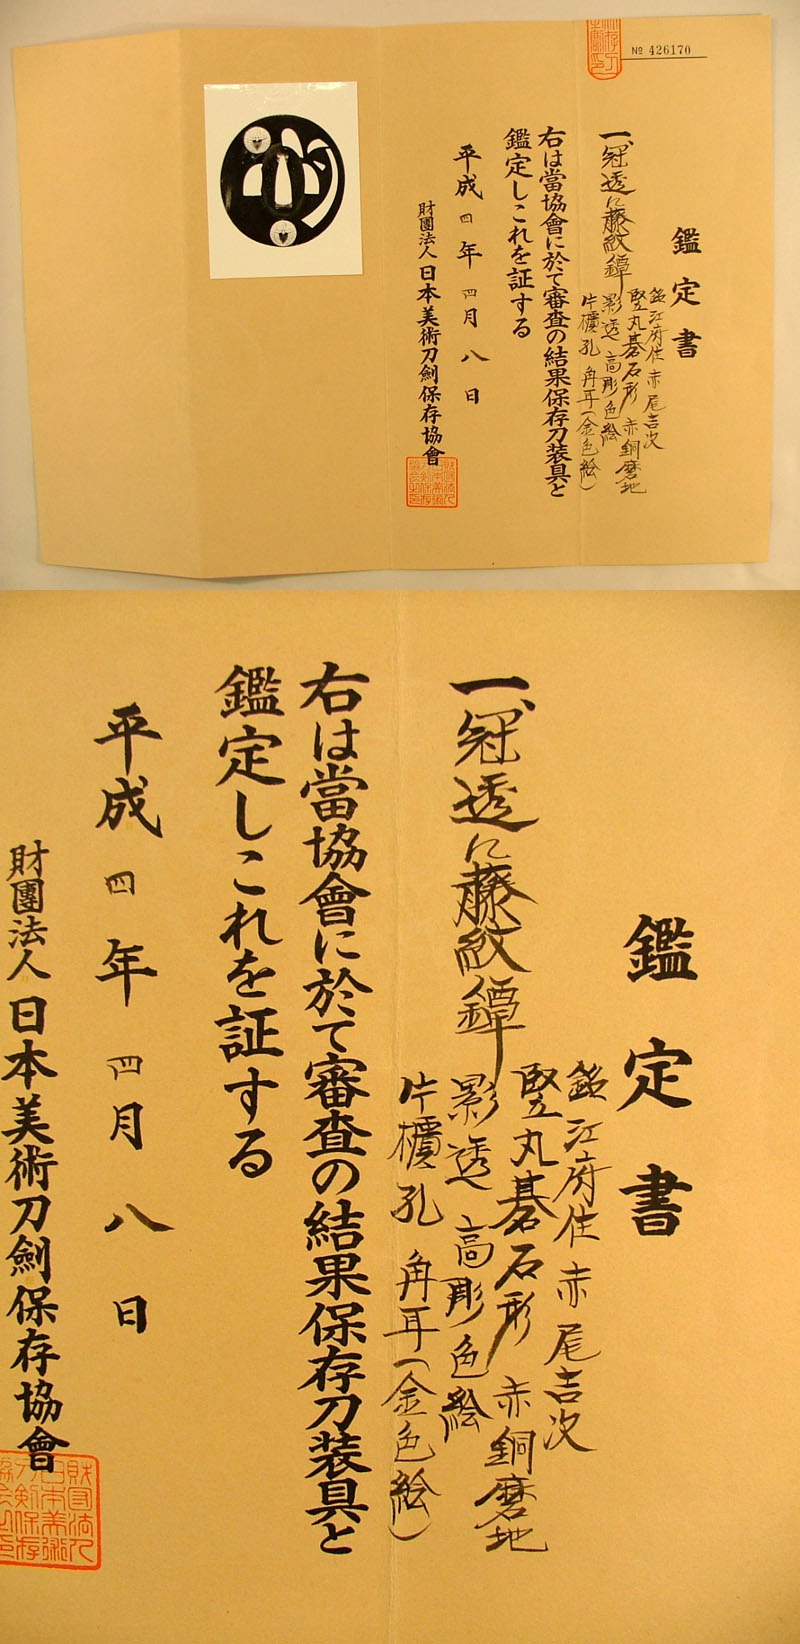 № 426170
鑑定書
一、冠透に藤紋鐔
銘江府住赤尾吉次
竪丸碁石形 赤銅磨地
影透 高彫色絵
片櫃孔 角耳(金色絵)
右は當協會に於て審査の結果保存刀装具と
鑑定しこれを証する
平成四年四月八日
財團法人日本美術刀劍保存協會
鑑定書
一、冠透に藤紋鐔
銘江府住赤尾吉次
竪丸碁石形 赤銅磨地
影透 高彫色絵
片櫃孔 角耳(金色絵)
右は當協會に於て審査の結果保存刀装具と
鑑定しこれを証する
平成四年四月八日
財團法人日本美術刀劍保存協會